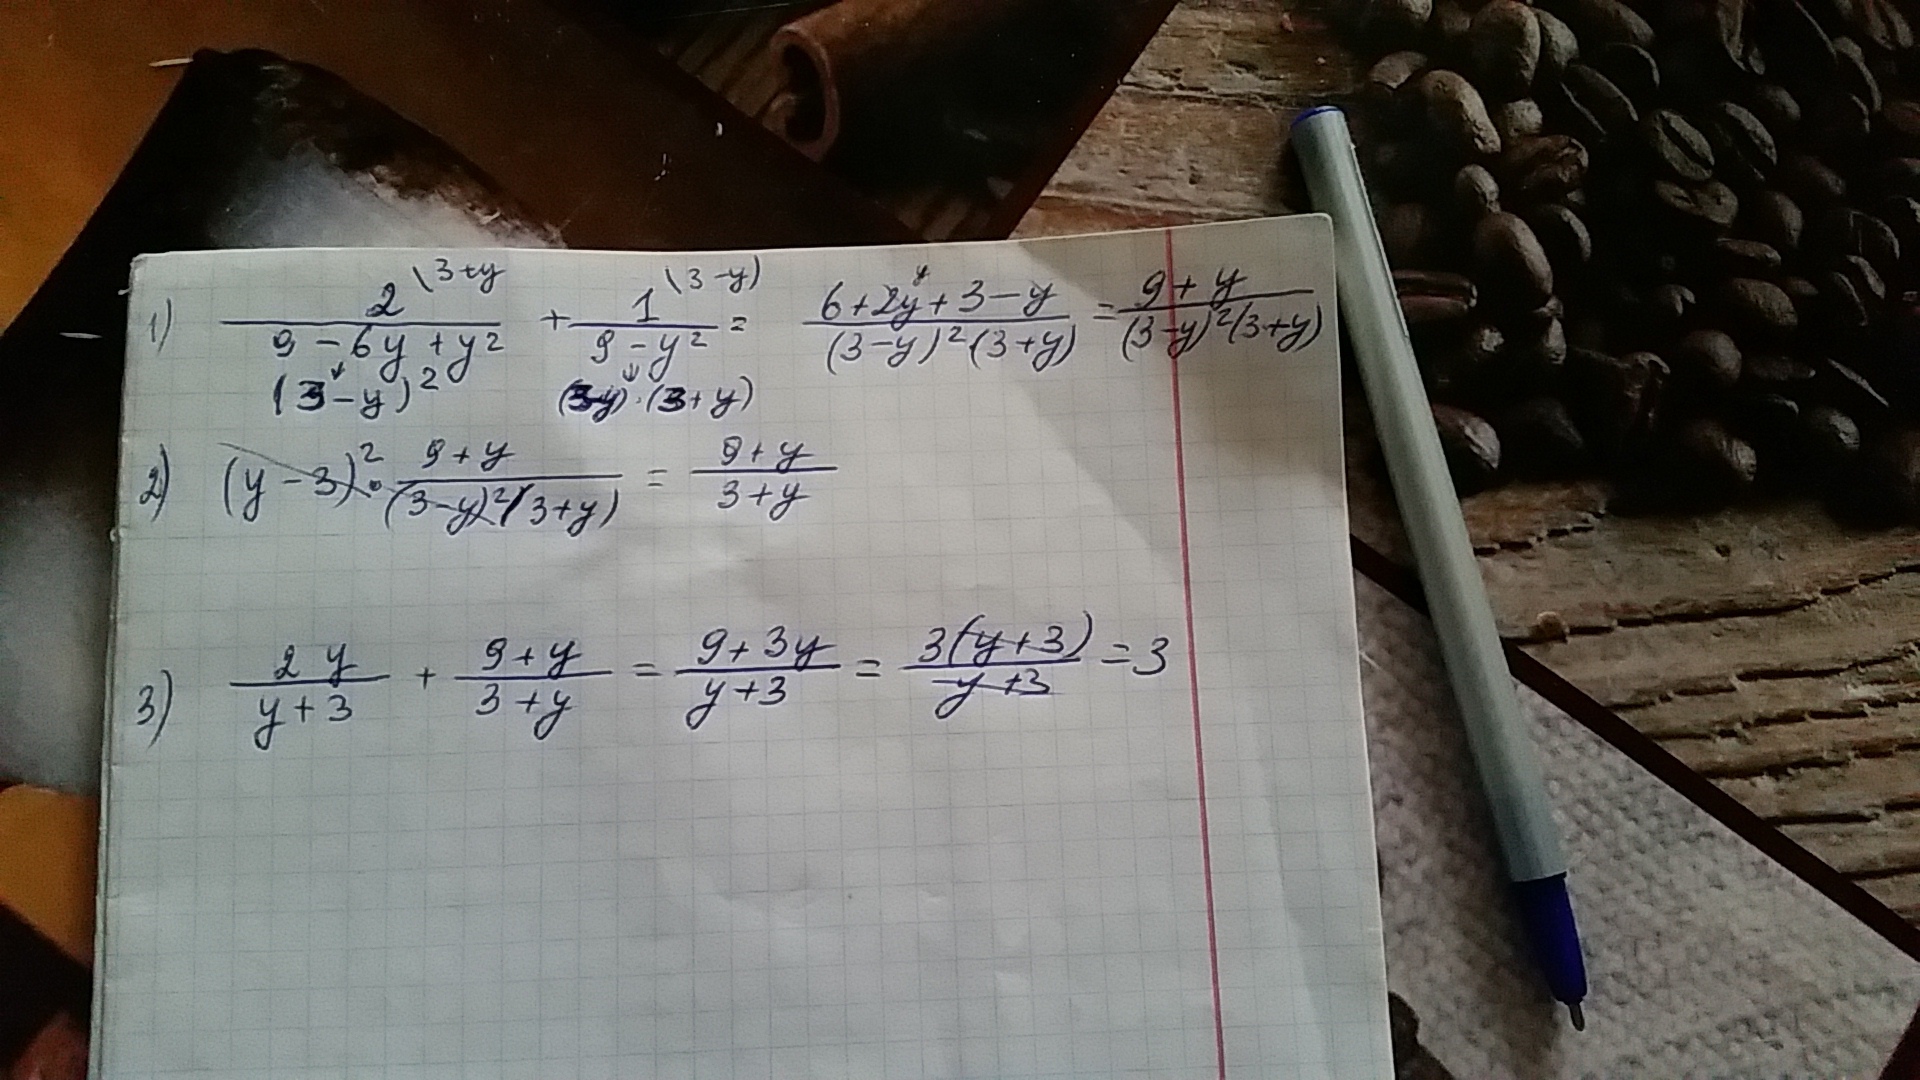 1) 2\3+y / (9 - 6y + y²) + 1\3-y) / (9 - y²) = (6+2y+3-y) / ((3-y)²(3+y)) = (9+y) / ((3-y)²(3+y))
(3-y)² (3-y)·(3+y)
2) (y-3)² · (9+y) / ((3-y)²(3+y)) = (9+y) / (3+y)
3) 2y / (y+3) + (9+y) / (3+y) = (9+3y) / (y+3) = 3(y+3) / (y+3) = 3